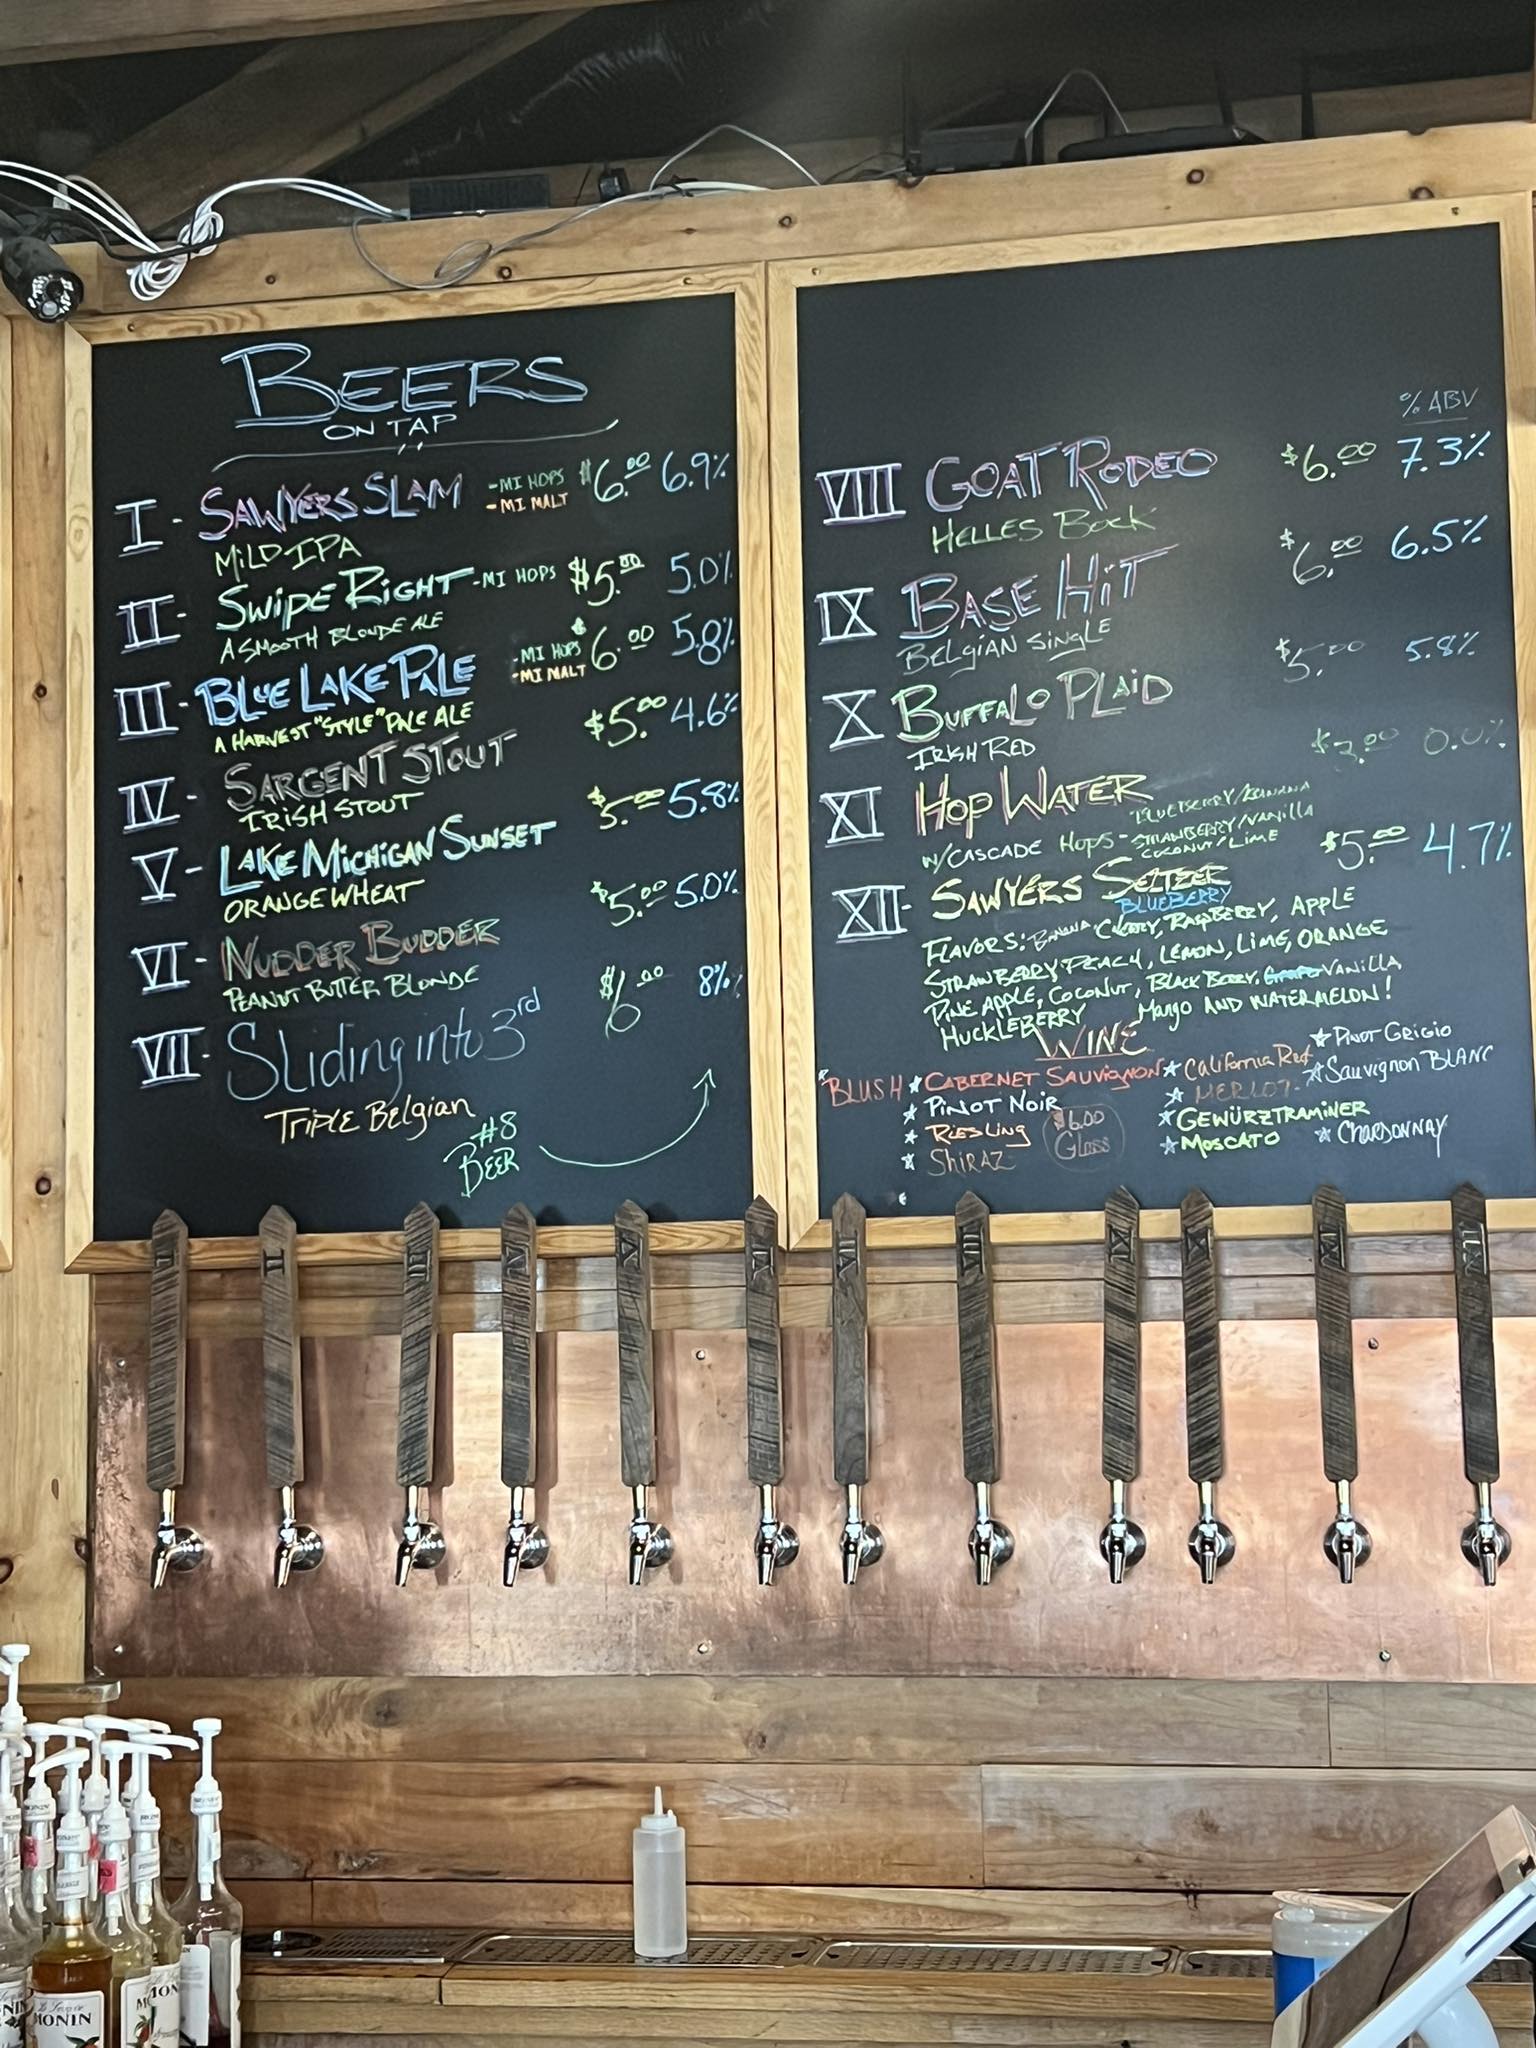 BEERS
ON TAP
I - SAWYERS SLAM -MI HOPS -MI MALT $6.00 6.9%
MILD IPA
II - SWIPE RIGHT -MI HOPS $5.00 5.0%
A SMOOTH BLONDE ALE
III - BLUE LAKE PALE -MI HOPS -MI MALT $6.00 5.8%
A HARVEST "STYLE" PALE ALE
IV - SARGENT STOUT $5.00 4.6%
IRISH STOUT
V - LAKE MICHIGAN SUNSET $5.00 5.8%
ORANGE WHEAT
VI - NUDDER BUDDER $5.00 5.0%
PEANUT BUTTER BLONDE
VII - Sliding into 3rd $6.00 8%
TRIPLE BELgian
#8
BEER
% ABV
VIII GOAT RODEO $6.00 7.3%
HELLES BOCK
IX BASE HiT $6.00 6.5%
BELgiAN SiNgLE
X BUFFALO PLAiD $5.00 5.8%
IRISH RED
XI HOP WATER $3.00 0.0%
W/CASCADE HOPS - BLUEBERRY/BANANA
STRAWBERRY/VANILLA
COCONUT/LIME
XII - SAWYERS SELTZER $5.00 4.7%
BLUEBERRY
FLAVORS: BANANA CHERRY, RASPBERRY, APPLE
STRAWBERRY, PEACH, LEMON, LIME, ORANGE
PINEAPPLE, COCONUT, BLACK BERRY, VANILLA,
HUCKLEBERRY MANgO AND WATERMELON!
WINE
BLUSH CABERNET SAUVIGNON CALIFORNIA RED PINOT GRIGIO
PINOT NOIR MERLOT SAUVIGNON BLANC
RIESLING $6.00 GLASS GEWÜRZTRAMINER
SHIRAZ MOSCATO CHARDONNAY
I II III IV V VI VII VIII IX X XI XII
MONIN